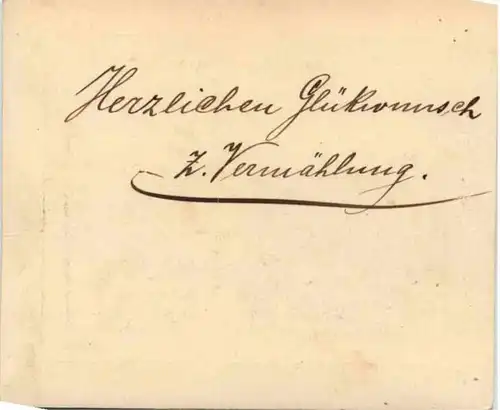 Herzlichen Glükwunsch
z. Vermählung.